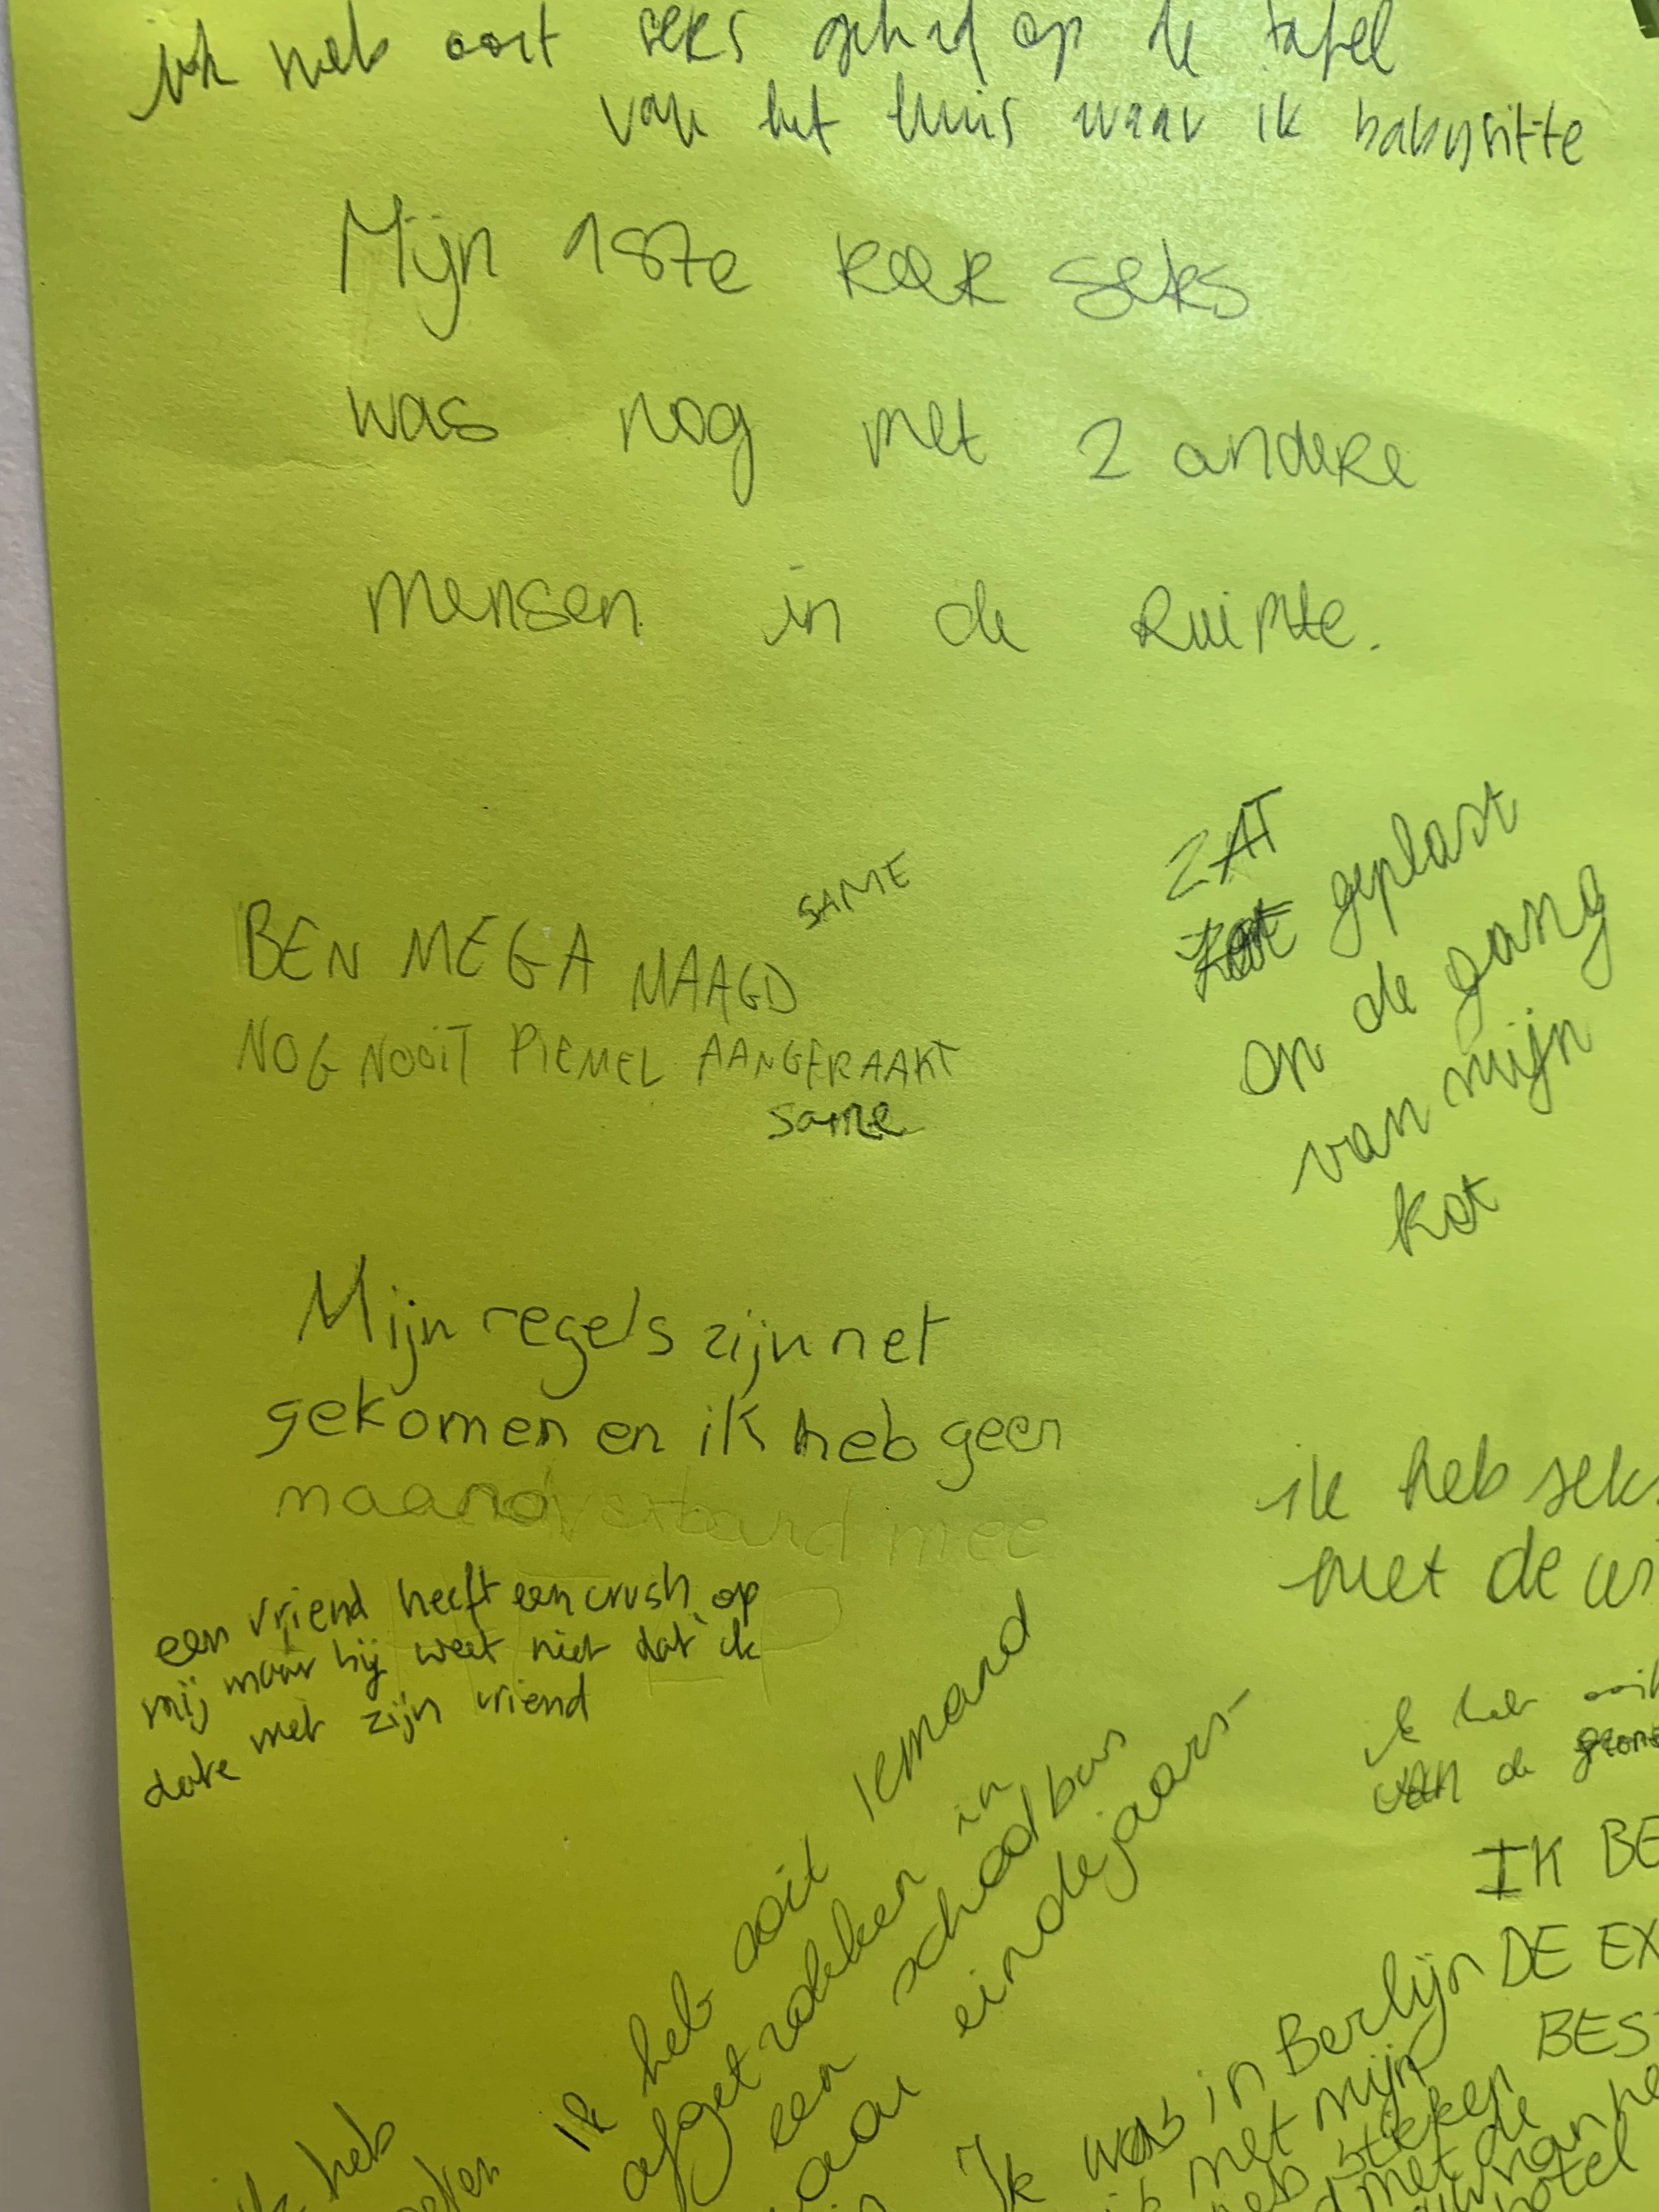 ik heb ooit seks gehad op de tafel
van het huis waar ik babysitte
Mijn 187e keer seks
was nog met 2 andere
mensen in de Ruimte.
SAME
BEN MEGA MAAGD
NOG NOOIT PIEMEL AANGERAAKT
same
ZAT
geplast
on de gang
van mijn
kot
Mijn regels zijn net
gekomen en ik heb geen
maandverband mee
een vriend heeft een crush op
mij maar hij weet niet dat ik
date met zijn vriend
ik heb seks
met de
ik heb ooit
van de
IK BE
DE EX
BES
Ik heb ooit iemand
afgetrokken in
een schoolbus
naar eindejaars-
Ik was in Berlijn
met mijn
heb steken
met de
hotel
ik heb